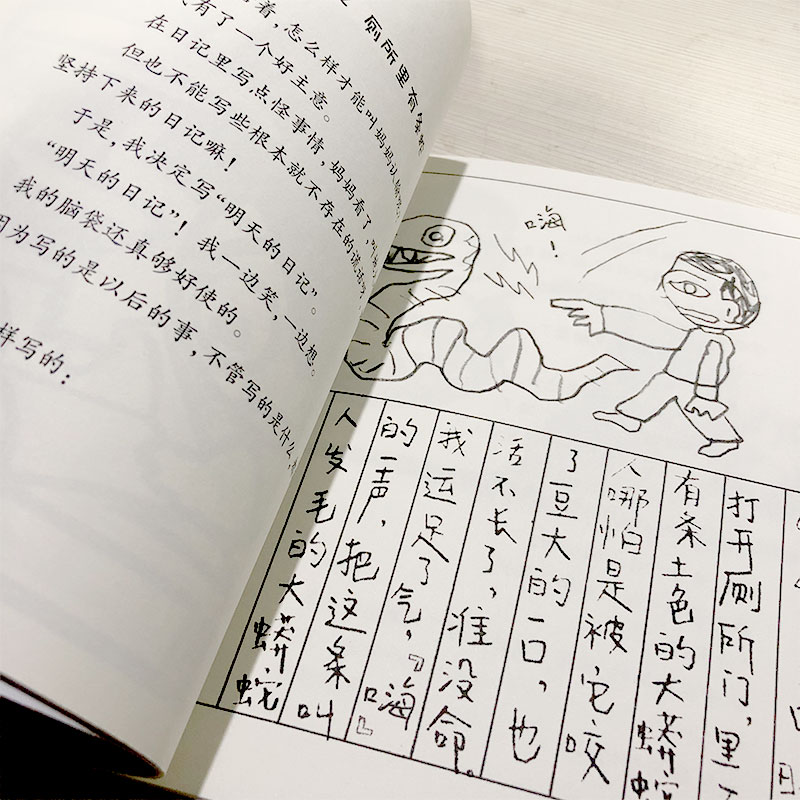 厕所里有
着，怎么样才能叫妈妈认
有了一个好主意。
在日记里写点怪事情，妈妈看了，
但也不能写些根本就不存在的谎
坚持下来的日记嘛！
于是，我决定写“明天的日记”。
“明天的日记”！我一边笑，一边想。
我的脑袋还真够好使的。
因为写的是以后的事，不管写的是什么，
样写的：
嗨！
打开厕所门，里
有条土色的大蟒蛇
人哪怕是被它咬
了豆大的一口，也
活不长了，准没命。
我运足了气，『嗨』
的一声，把这条叫
人发毛的大蟒蛇